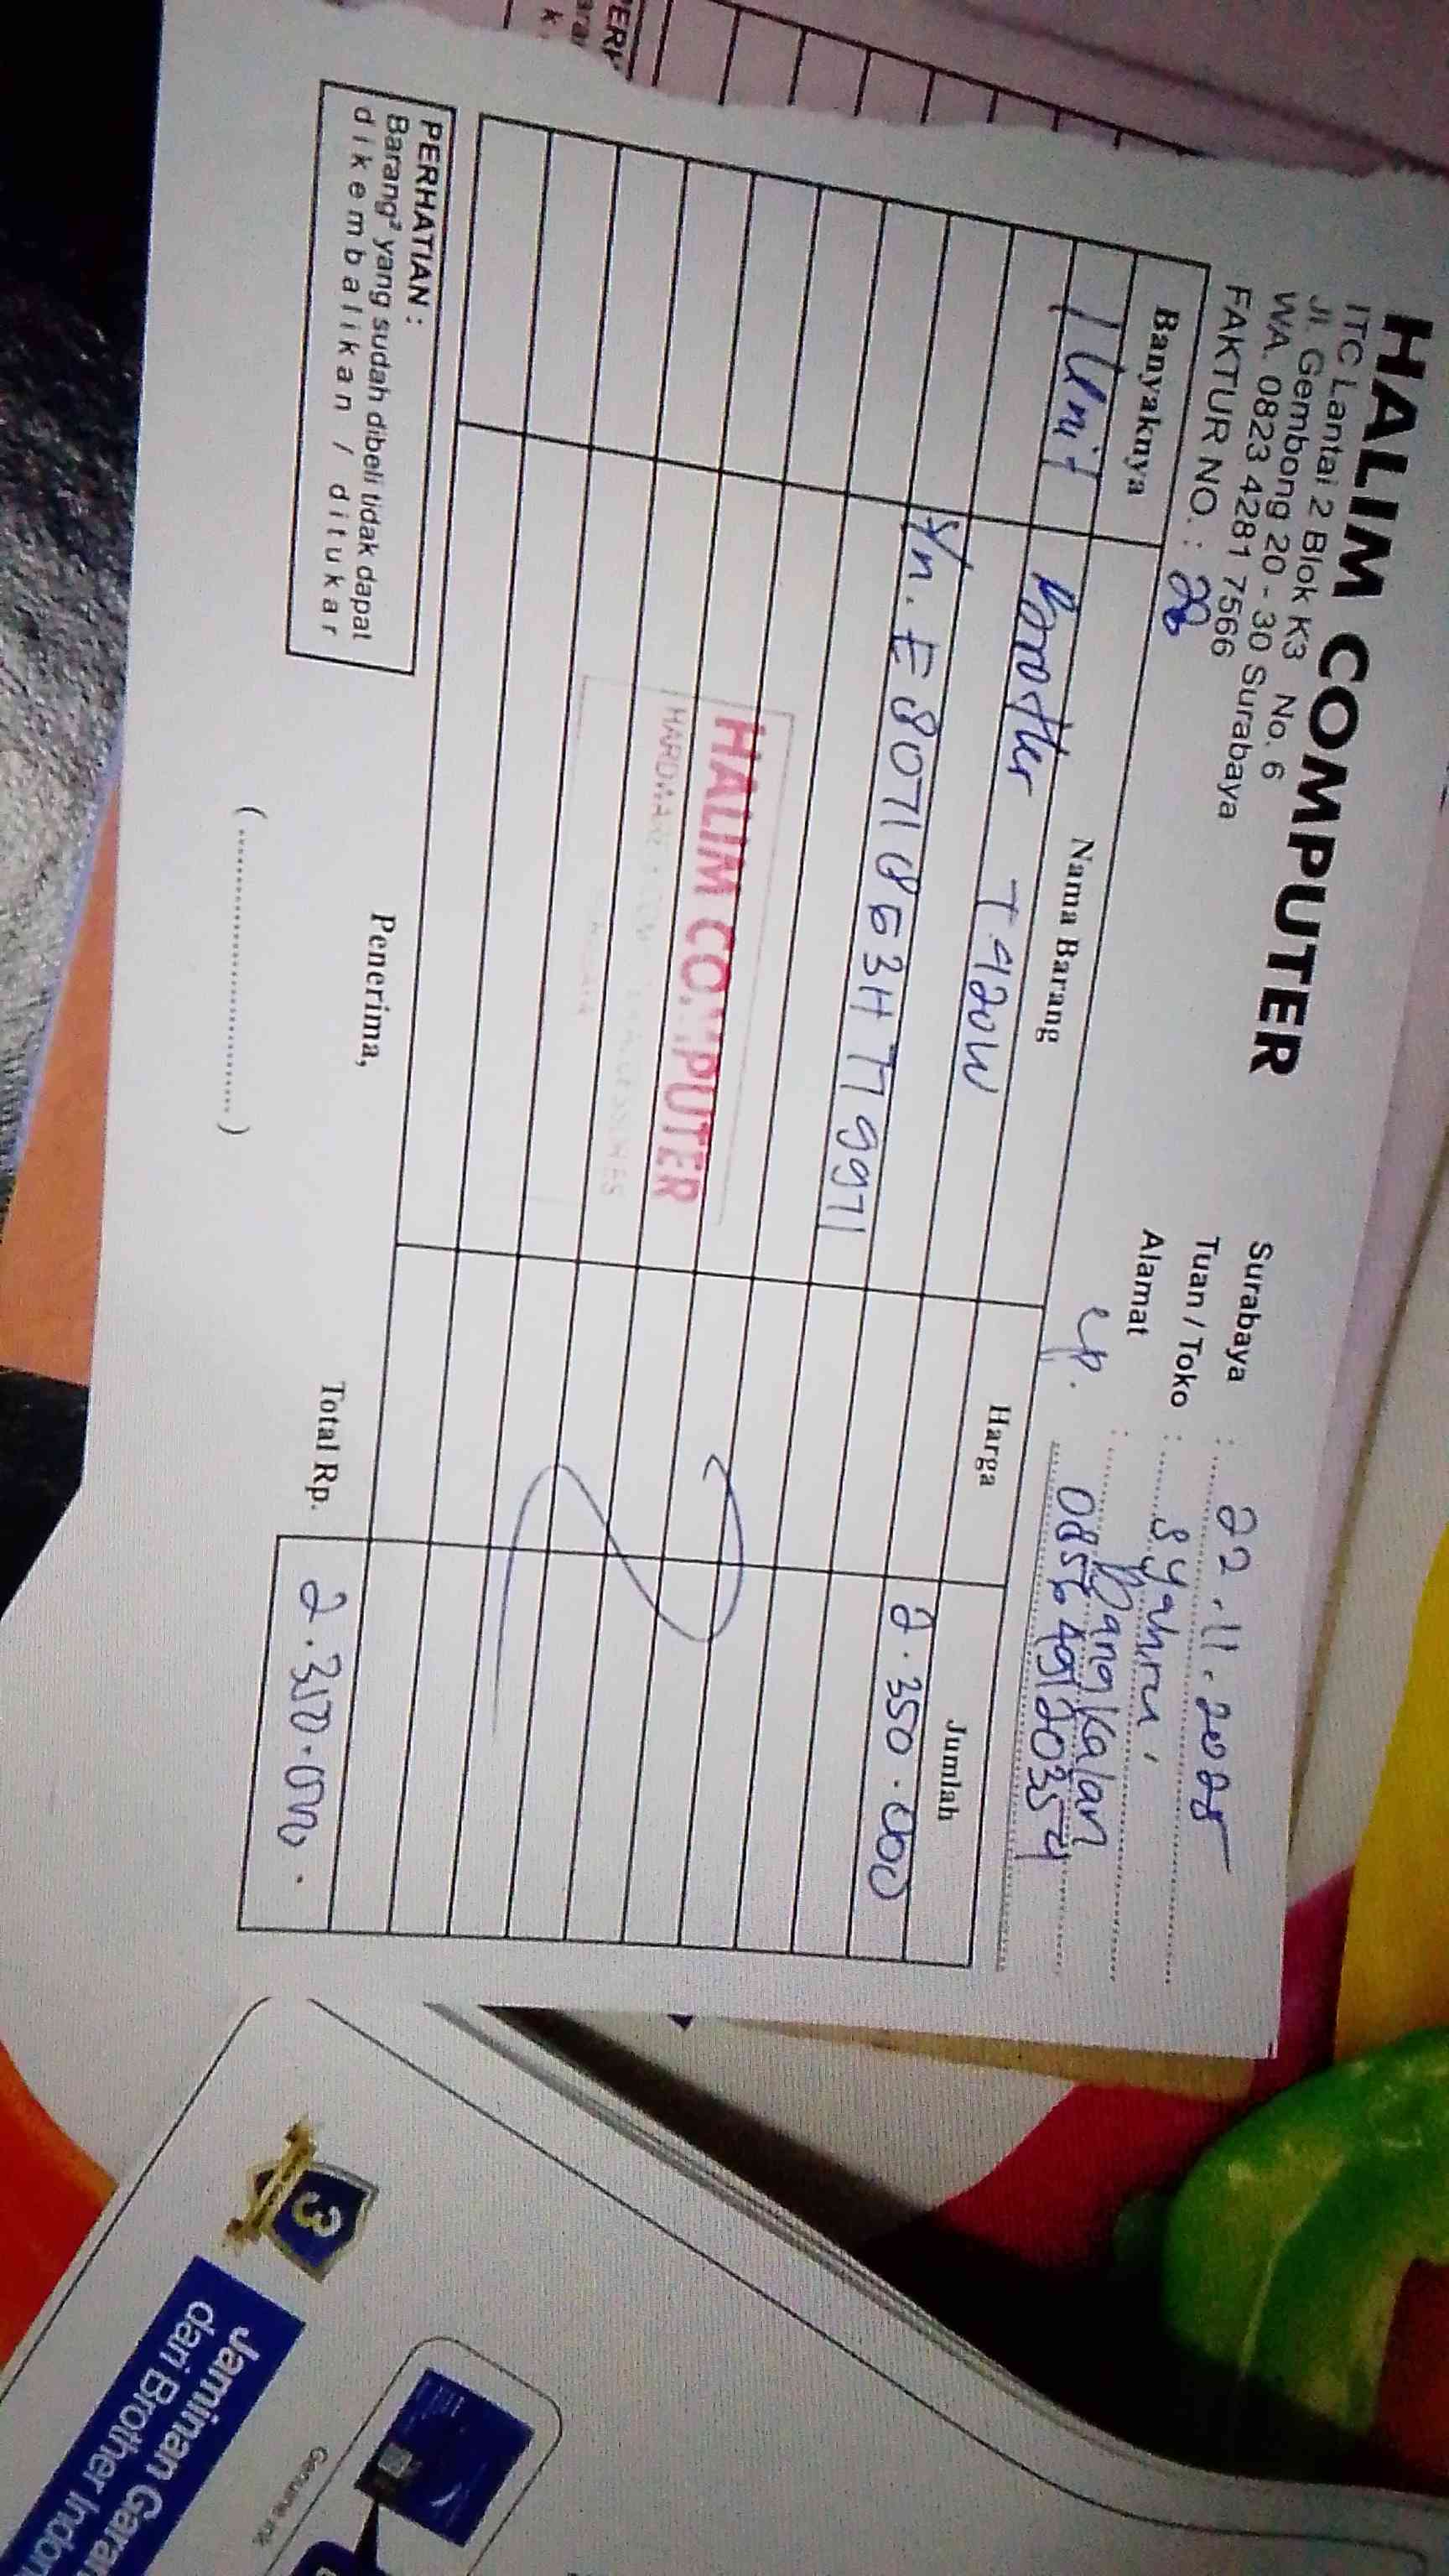 HALIM COMPUTER
ITC Lantai 2 Blok K3 No. 6
Jl. Gembong 20 - 30 Surabaya
WA. 0823 4281 7566
FAKTUR NO. : 28
Surabaya : 22.11.2025
Tuan / Toko : Syahru'
Alamat : Bangkalan
cp.
Banyaknya Nama Barang Harga Jumlah
1 Unit Brother T920W 2.350.000
HALIM COMPUTER
PERHATIAN :
Barang² yang sudah dibeli tidak dapat
dikembalikan / ditukar
Penerima,
(........................)
Total Rp. 2.350.000.
3
Jaminan Garan
dari Brother Indon
Genuine ink